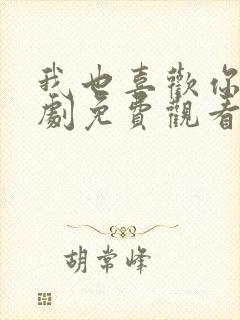 我也喜歡你
劇免費觀看
胡常峰